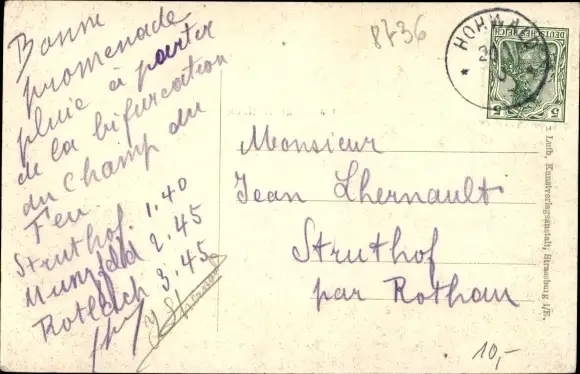 Bonne
promenade
pluie à partir
de la bifurcation
du Champ du
Feu
Struthof. 1.40
Munzfeld 2.45
Rotlach 3.45
8736
HOHWALD
DEUTSCHES REICH
5 5
Monsieur
Jean Lhernault
Struthof
par Rothau
Luib, Kunstverlagsanstalt, Strassburg i/E.
10,-